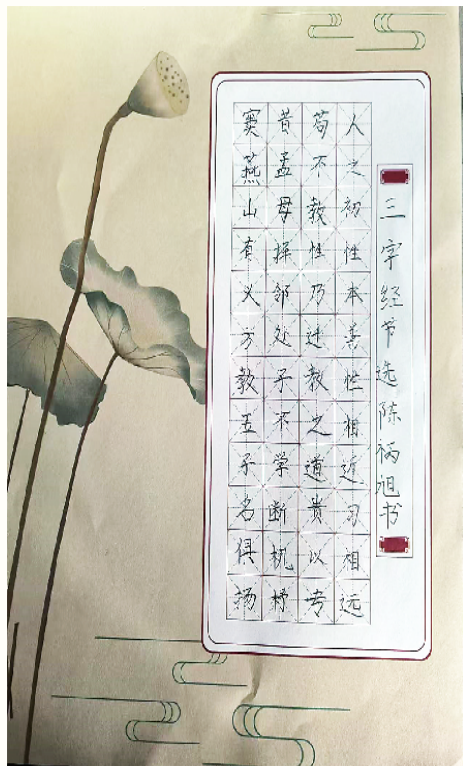 三字经节选陈祸旭书
人之初性本善性相近习相远
苟不教性乃迁教之道贵以专
昔孟母择邻处子不学断机杼
窦燕山有义方教五子名俱扬